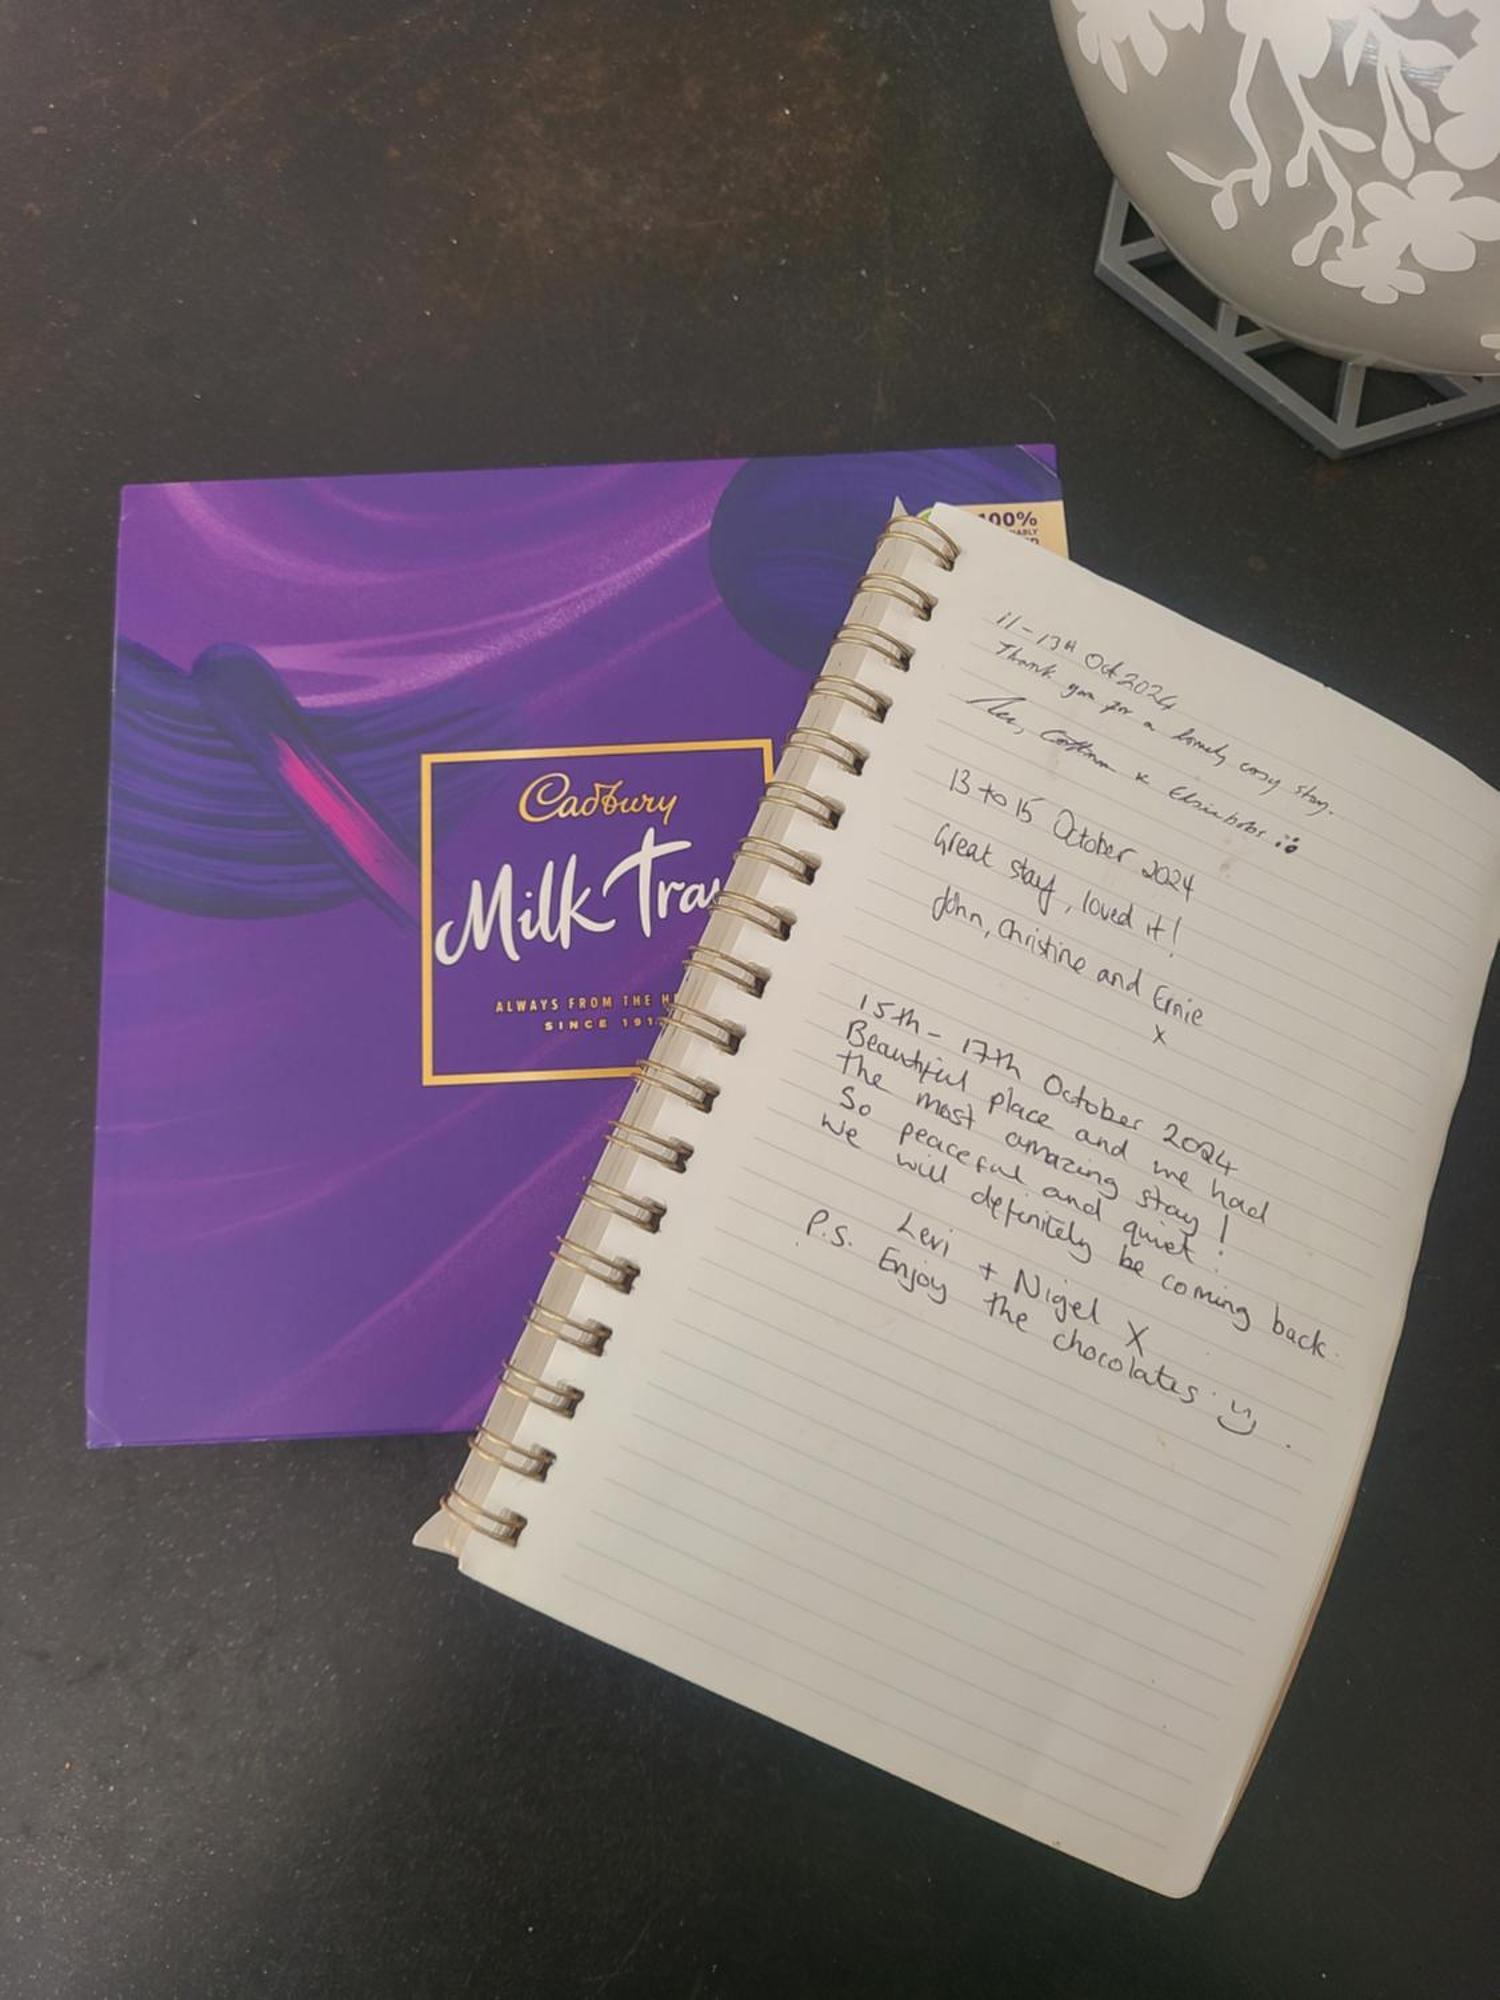 Cadbury
Milk Tra
ALWAYS FROM THE H
SINCE 191
100%
11-13th Oct 2024
Thank you for a lovely cosy stay.
13 to 15 October 2024
Great stay, loved it!
John, Christine and Ernie
x
15th - 17th October 2024
Beautiful place and we had
the most amazing stay!
So peaceful and quiet.
We will definitely be coming back.
Levi + Nigel X
P.S. Enjoy the chocolates